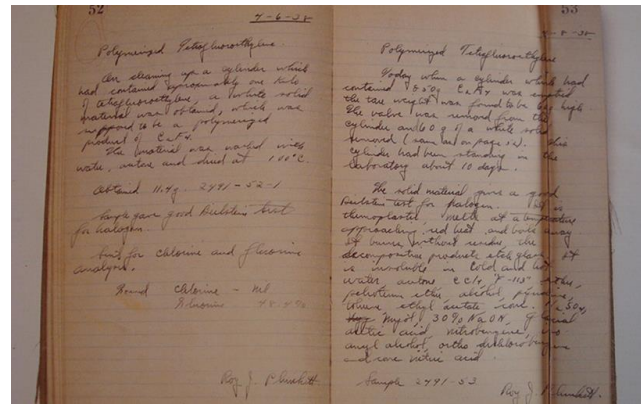 52
4-6-38
Polymerized Tetrafluoroethylene
On cleaning up a cylinder which
had contained approximately one kilo
of tetrafluoroethylene, a white solid
material was obtained, which was
supposed to be a polymerized
product of C2F4.
The material was washed with
water, and dried at 100°C.
Obtained 11.4g. 2491-52-1
Sample gave good Beilstein test
for halogen.
Sent for chlorine and fluorine
analysis.
Found Chlorine - nil
Fluorine
Roy J. Plunkett
53
4-8-38
Polymerized Tetrafluoroethylene
Today when a cylinder which had
contained C2F4 was emptied
the tare weight was found to be high
The valve was removed from the
cylinder and of a white solid
removed (same as on page 52). This
cylinder had been standing in the
laboratory about 10 days.
The solid material gave a good
Beilstein test for halogen. It is
thermoplastic, melts at a temperature
approaching red heat, and boils away
It burns without residue, the
decomposition products etch glass. It
is insoluble in cold and hot
water, acetone, CCl4, ether,
petroleum ether, alcohol, pyridine,
toluene, ethyl acetate, conc. H2SO4,
30% NaOH, glacial
acetic acid, nitrobenzene,
amyl alcohol, ortho dichlorobenzene
and conc nitric acid.
Sample 2491-53
Roy J. Plunkett